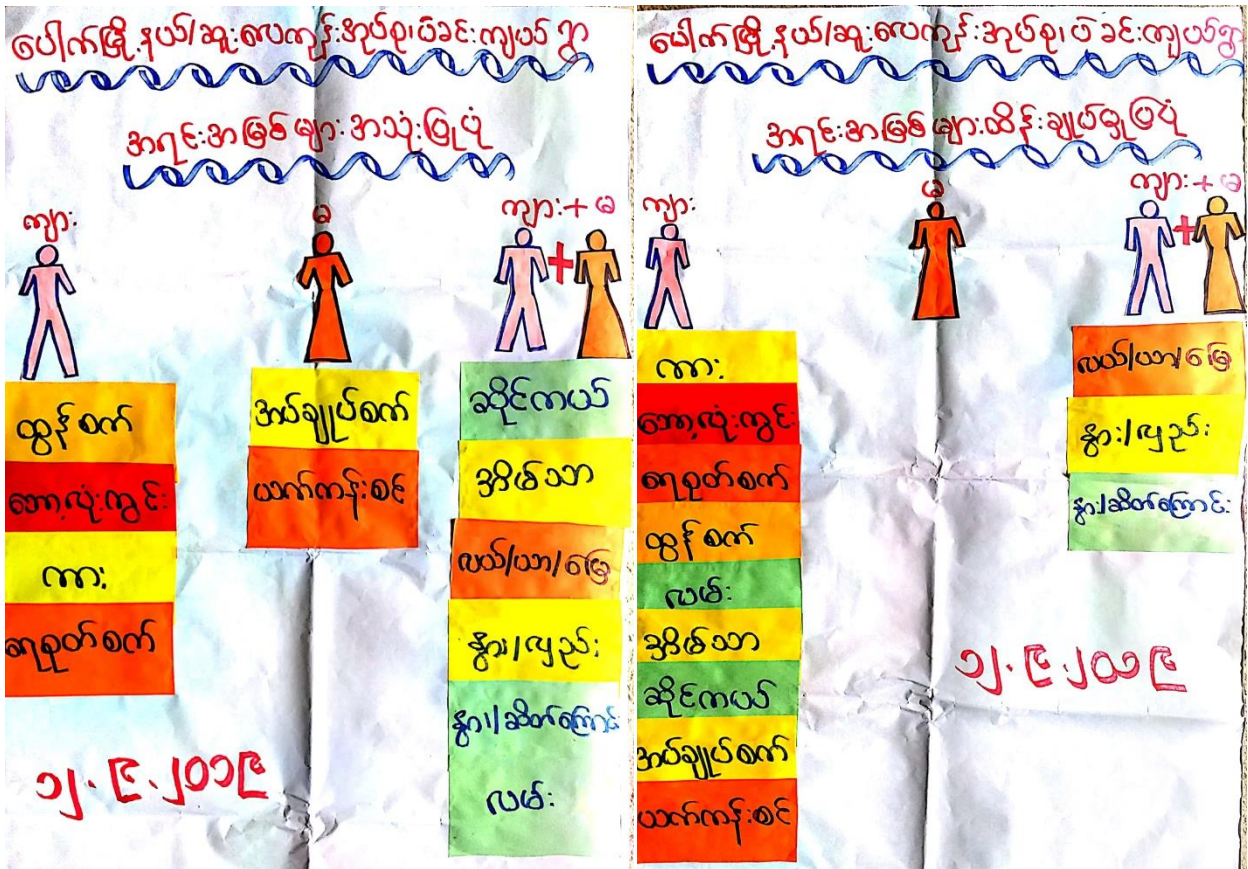 ပေါက်မြို့နယ်/ဆူးလေကုန်းအုပ်စု၊ပခင်းကျယ်ရွာ
အရင်းအမြစ်များအသုံးပြုပုံ
ကျား
မ
ကျား+မ
ထွန်စက်
ဘော့လုံးကွင်း
ကား
ရေစုတ်စက်
အပ်ချုပ်စက်
ယက်ကန်းစင်
ဆိုင်ကယ်
အိမ်သာ
လယ်/ယာ/မြေ
နွား/လှည်း
နွား/ဆိတ်ကြောင်း
လမ်း
၁၂.၉.၂၀၁၉
ပေါက်မြို့နယ်/ဆူးလေကုန်းအုပ်စု၊ပခင်းကျယ်ရွာ
အရင်းအမြစ်များထိန်းချုပ်မှုပြပုံ
ကျား
မ
ကျား+မ
ကား
ဘော့လုံးကွင်း
ရေစုတ်စက်
ထွန်စက်
လမ်း
အိမ်သာ
ဆိုင်ကယ်
အပ်ချုပ်စက်
ယက်ကန်းစင်
လယ်/ယာ/မြေ
နွား/လှည်း
နွား/ဆိတ်ကြောင်း
၁၂.၉.၂၀၁၉